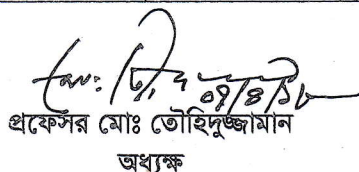 মোঃ তৌ
০৭/৪/১৮
প্রফেসর মোঃ তৌহিদুজ্জামান
অধ্যক্ষ